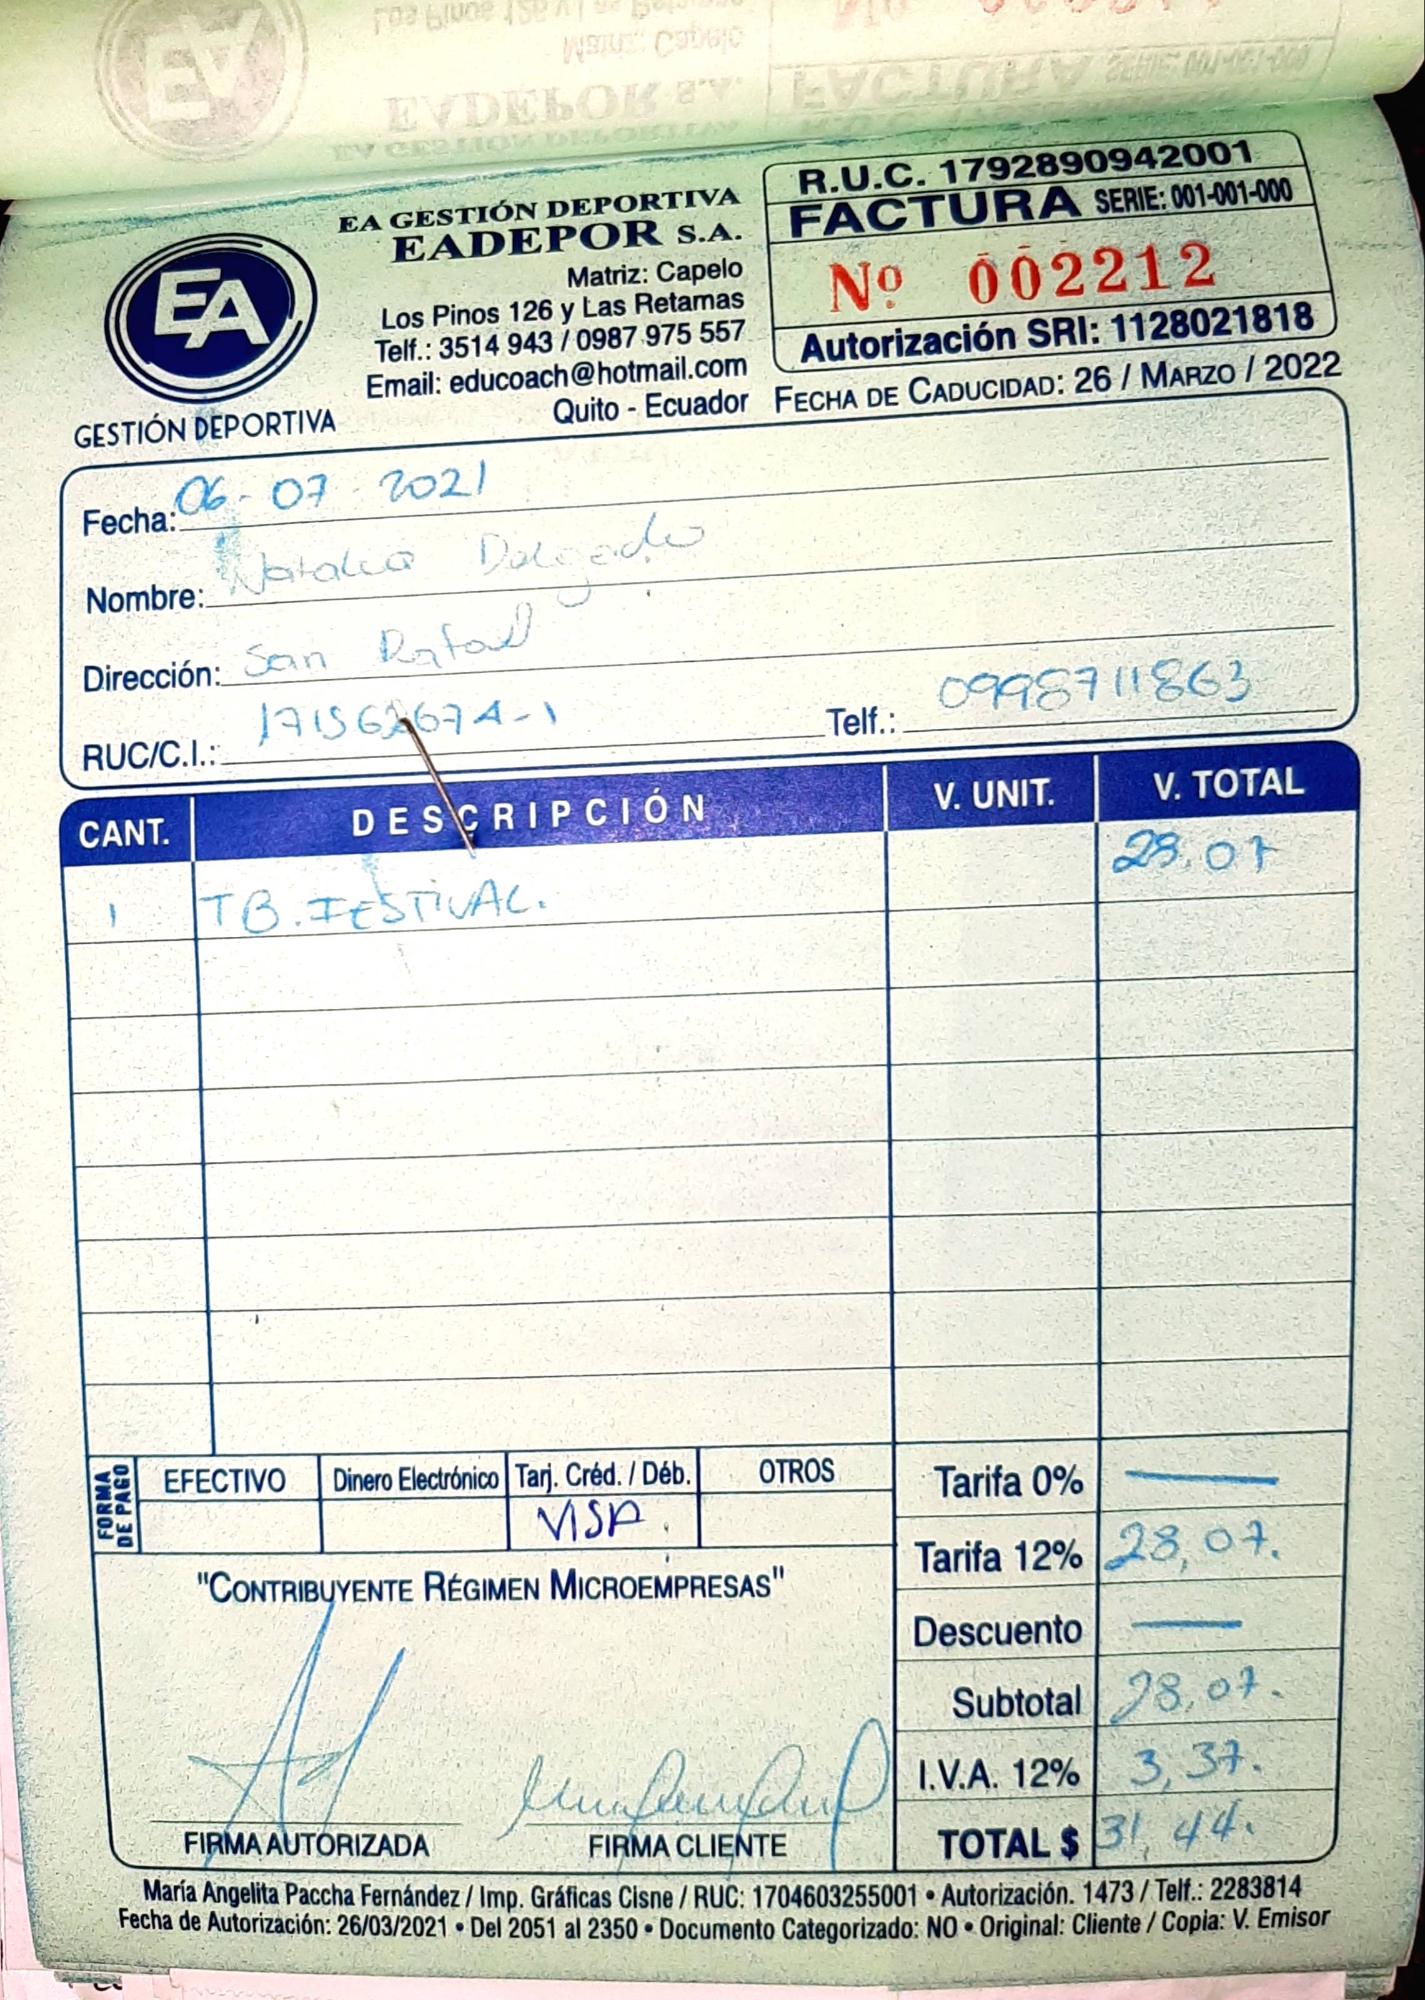 EA GESTIÓN DEPORTIVA
EADEPOR S.A.
Matriz: Capelo
Los Pinos 126 y Las Retamas
Telf.: 3514 943 / 0987 975 557
Email: educoach@hotmail.com
Quito - Ecuador
EA
GESTIÓN DEPORTIVA
R.U.C. 1792890942001
FACTURA SERIE: 001-001-000
Nº 002212
Autorización SRI: 1128021818
FECHA DE CADUCIDAD: 26 / MARZO / 2022
Fecha: 06-07-2021
Nombre: Natalia Delgado
Dirección: San Rafael
RUC/C.I.: Telf.: 0998711863
CANT. DESCRIPCIÓN V. UNIT. V. TOTAL
1 TB. FESTIVAL. 28.07
FORMA DE PAGO
EFECTIVO Dinero Electrónico Tarj. Créd. / Déb. OTROS
VISA
Tarifa 0% —
Tarifa 12% 28,07.
Descuento —
Subtotal 28,07.
I.V.A. 12% 3,37.
TOTAL $ 31,44.
"CONTRIBUYENTE RÉGIMEN MICROEMPRESAS"
FIRMA AUTORIZADA FIRMA CLIENTE
María Angelita Paccha Fernández / Imp. Gráficas Cisne / RUC: 1704603255001 • Autorización. 1473 / Telf.: 2283814
Fecha de Autorización: 26/03/2021 • Del 2051 al 2350 • Documento Categorizado: NO • Original: Cliente / Copia: V. Emisor